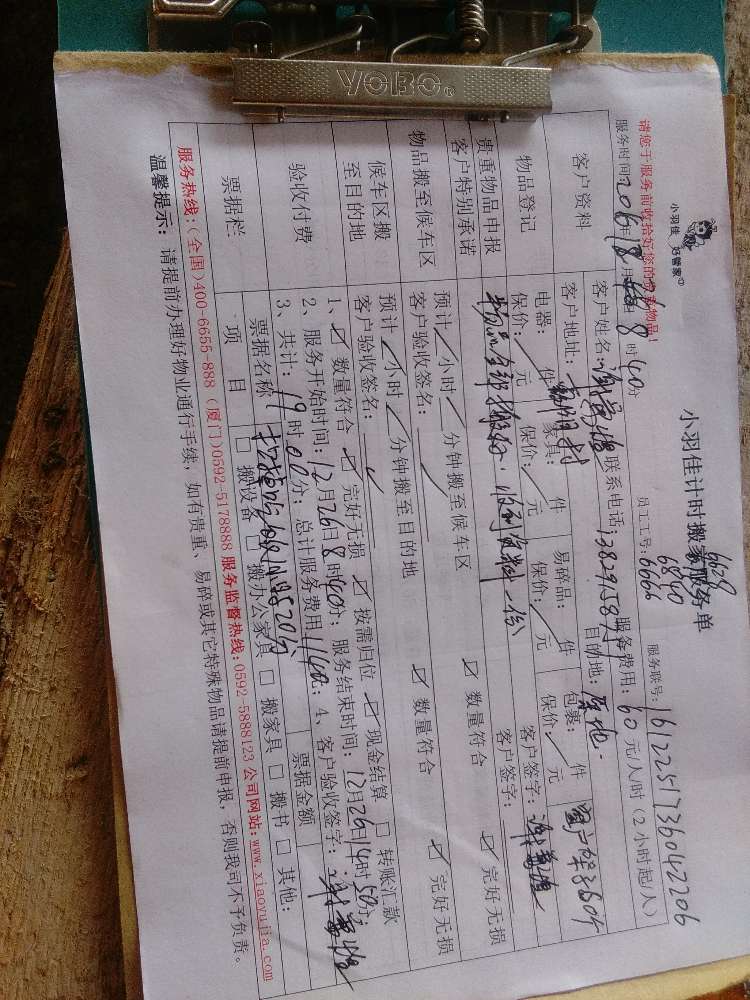 YOBO
小羽佳 好管家
小羽佳计时搬家服务单
6628
6840
6666
请您于服务前收拾好您的贵重物品!
员工工号:
服务联号: 1612251736042206
服务时间: 2016年12月26日8时40分
服务费用: 60元/人时(2小时起/人)
客户资料
客户姓名: 联系电话:
客户地址: 目的地: 原地.
物品登记
电器: 件 家具: 件 易碎品: 件 包裹: 件
保价: 元 保价: 元 保价: 元 保价: 元
贵重物品申报
客户特别承诺
物品全部搬好.收到资料一份
客户签字:
客户签字:
物品搬至候车区
预计 小时 分钟搬至候车区
数量符合 完好无损
客户验收签名:
候车区搬
至目的地
预计 小时 分钟搬至目的地
数量符合 完好无损
客户验收签名:
验收付费
1、 数量符合 完好无损 按需归位 现金结算 转账汇款
2、服务开始时间:12月26日8时40分; 服务结束时间:12月26日14时50分;
3、共计:19时00分; 总计服务费用1140元; 4、客户验收签字:
票据栏
票据名称 票据金额
项目 搬设备 搬办公家具 搬家具 搬书 其他:
服务热线:(全国)400-6655-888 (厦门)0592-5178888 服务监督热线:0592-5888123 公司网站:www.xiaoyujia.com
温馨提示: 请提前办理好物业通行手续, 如有贵重、易碎或其它特殊物品请提前申报, 否则我司不予负责。